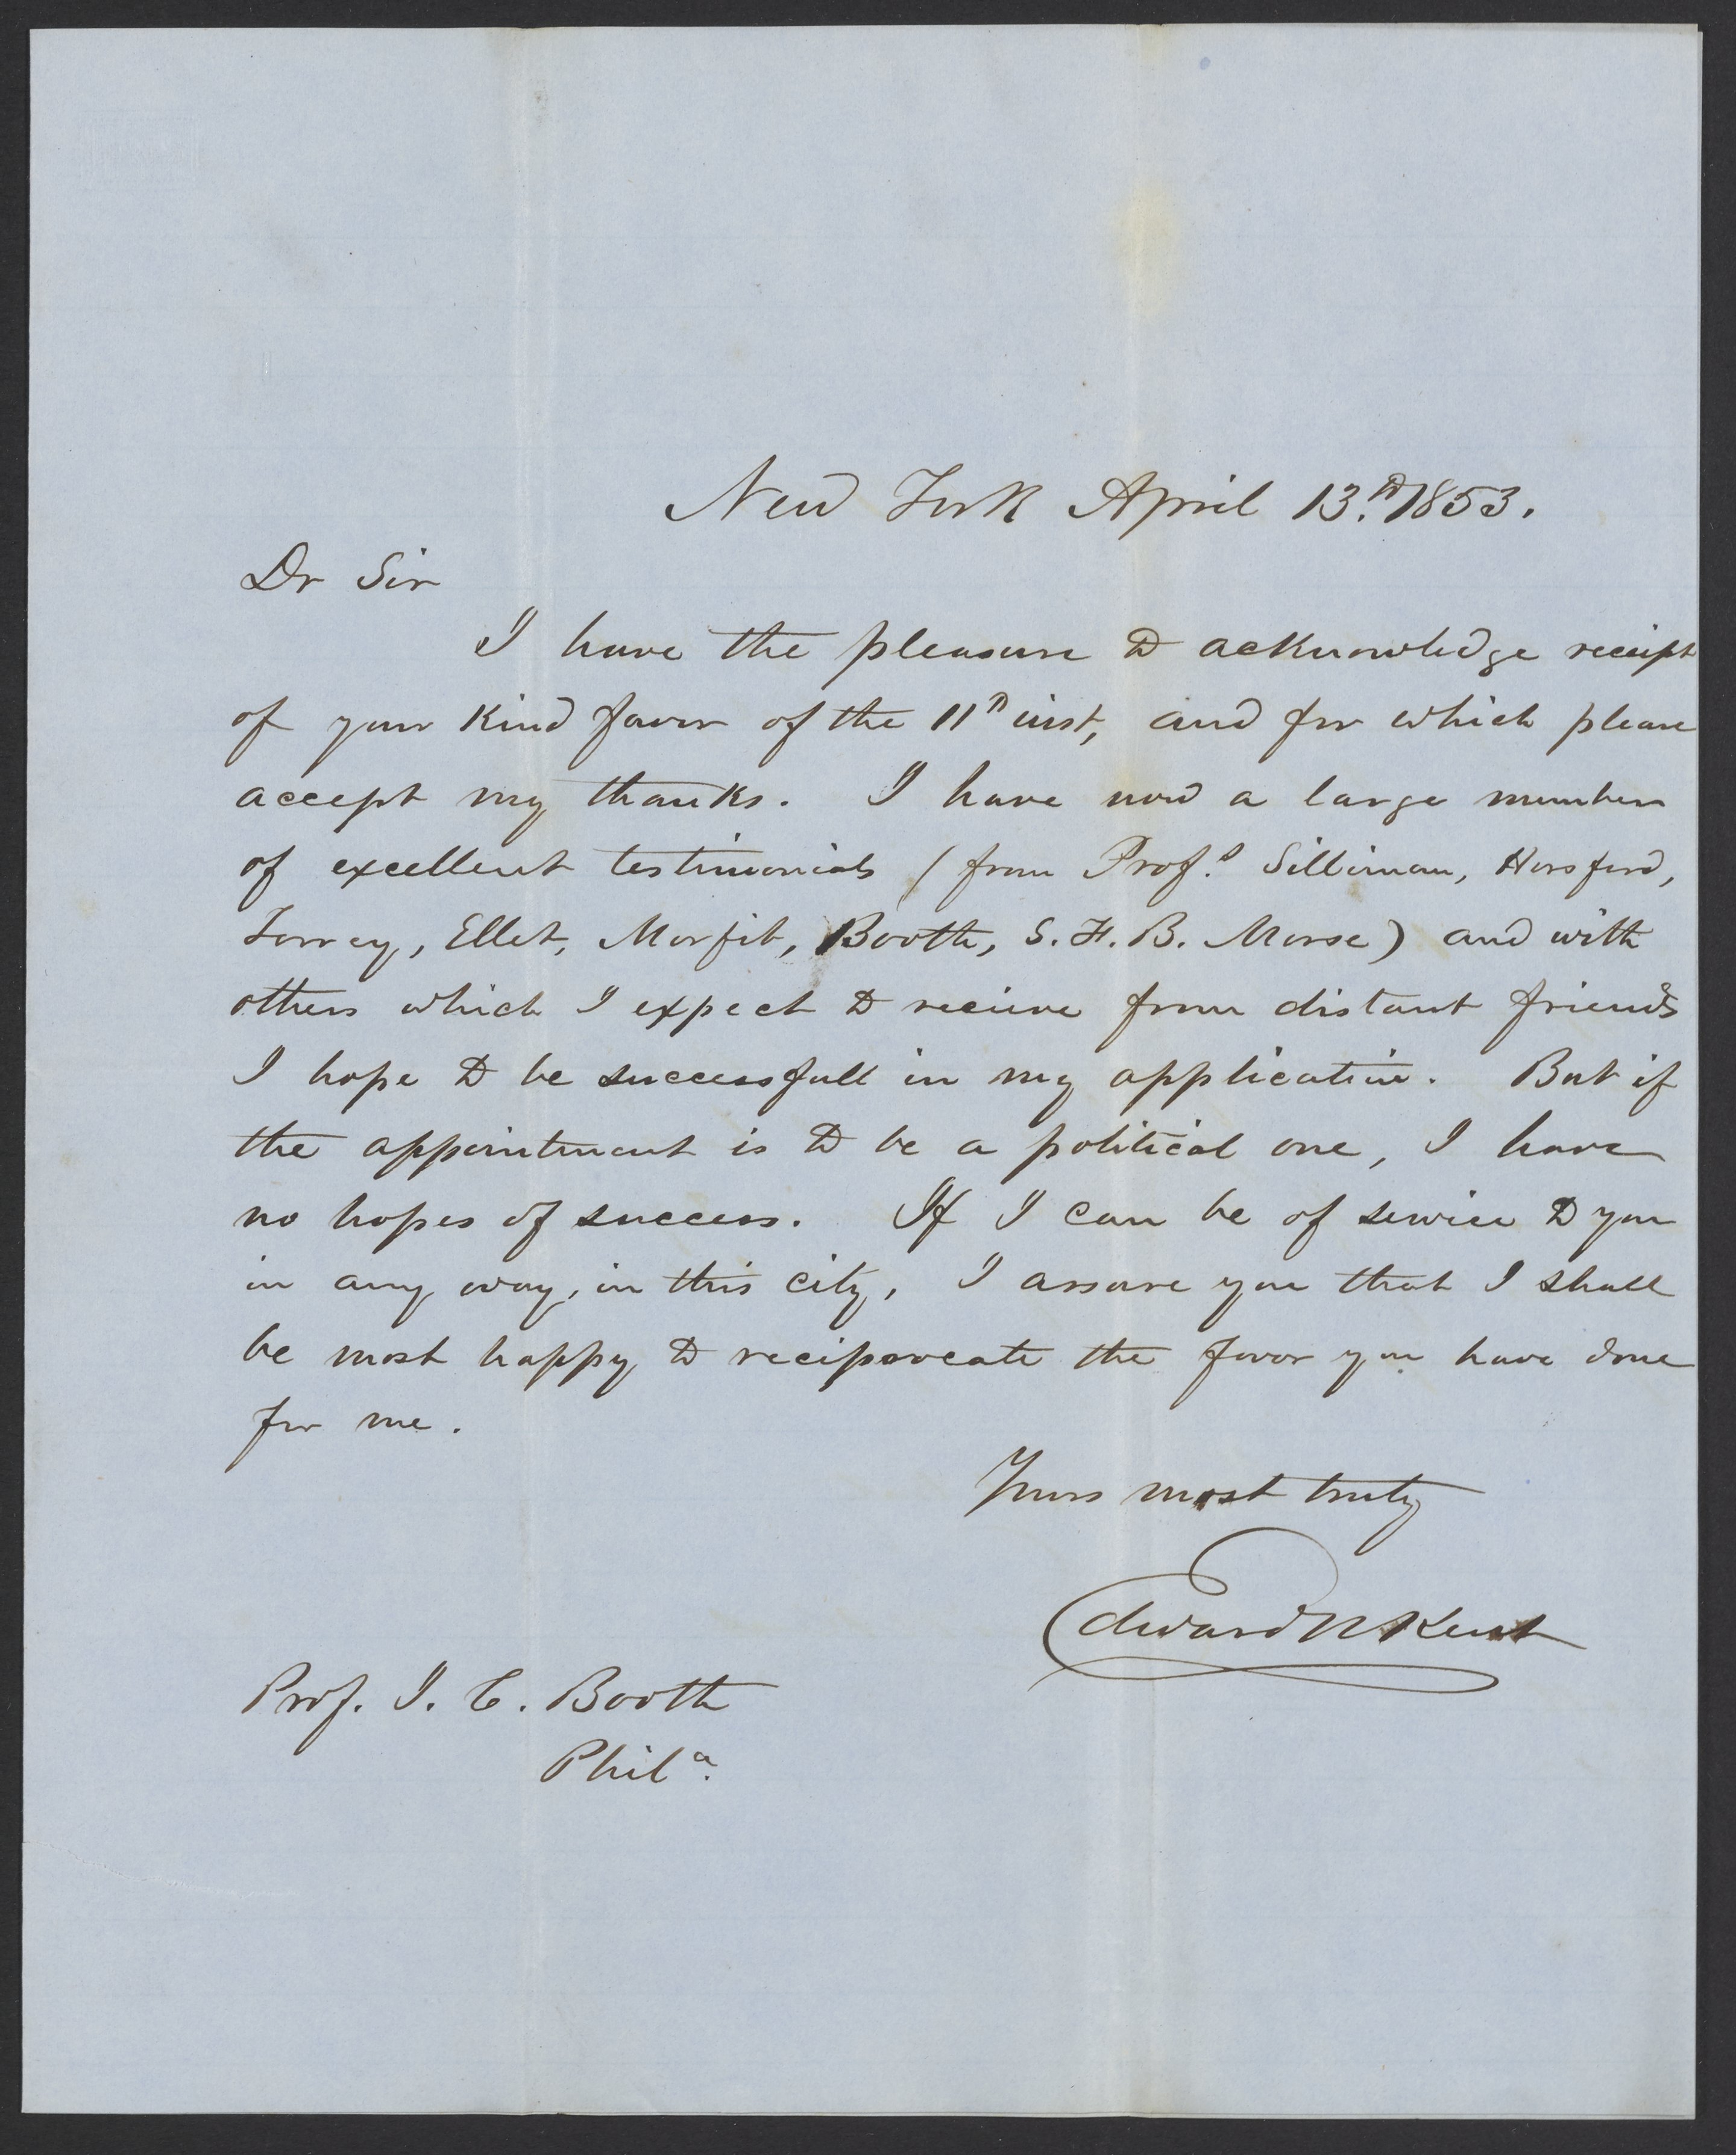 New York April 13.th 1853.
Dr Sir
I have the pleasure to acknowledge reciept
of your kind favor of the 11th inst, and for which please
accept my thanks. I have now a large number
of excellent testimonials (from Prof.s Silliman, Horsford,
Torrey, Ellet, Morfit, Booth, S. F. B. Morse) and with
others which I expect to recieve from distant friends
I hope to be successfull in my application. But if
the appointment is to be a political one, I have
no hopes of success. If I can be of service to you
in any way, in this city, I assure you that I shall
be most happy to reciprocate the favor you have done
for me.
Yours most truly
Edward N Kent
Prof. J. C. Booth
Phila.